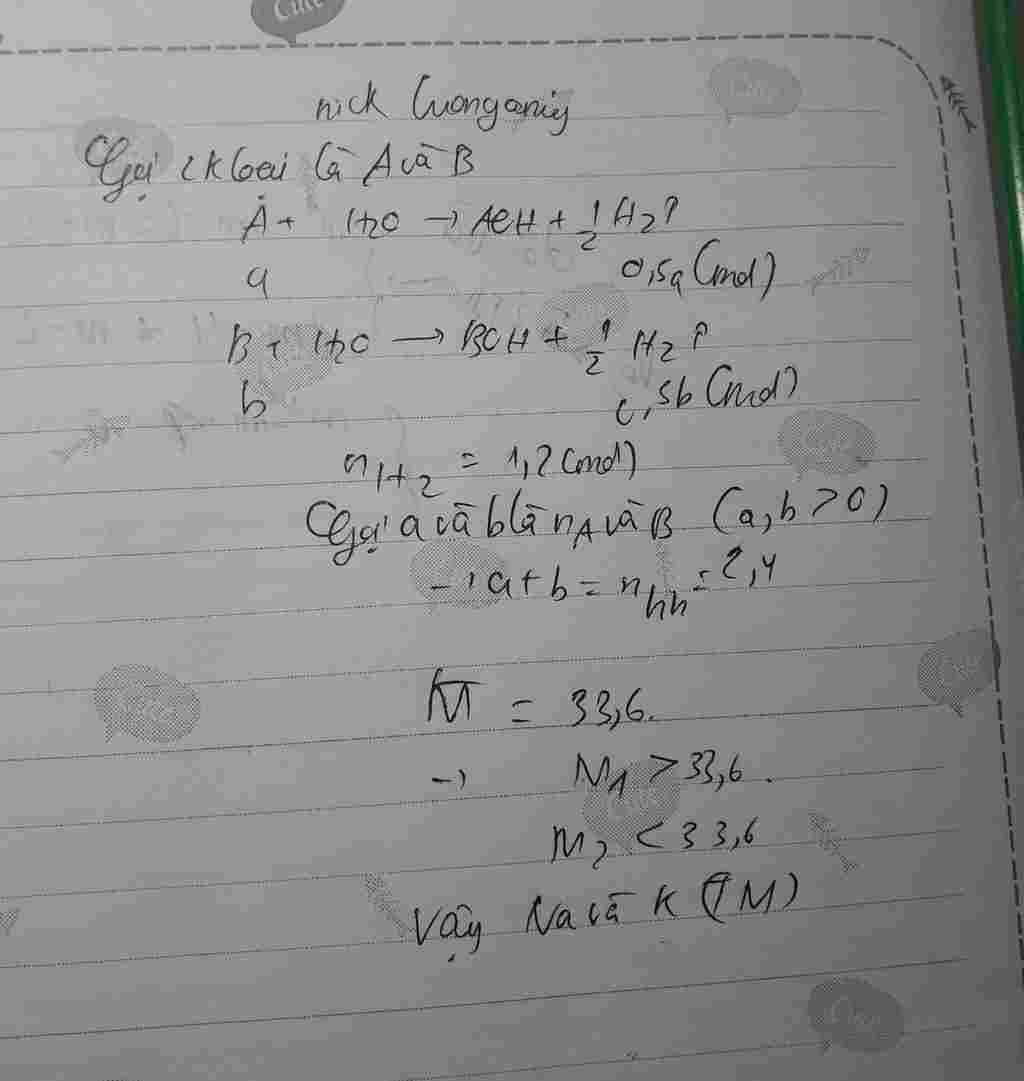 Cute
nick
Gọi 2 kloại là A và B
A + H2O → AOH + 1/2 H2↑
a 0,5a (mol)
B + H2O → BOH + 1/2 H2↑
b 0,5b (mol)
nH2 = 1,2 (mol)
Gọi a và b là nA và B (a, b > 0)
→ a + b = nhh = 2,4
M̅ = 33,6.
→ M1 > 33,6.
M2 < 33,6
Vậy Na và K (TM)